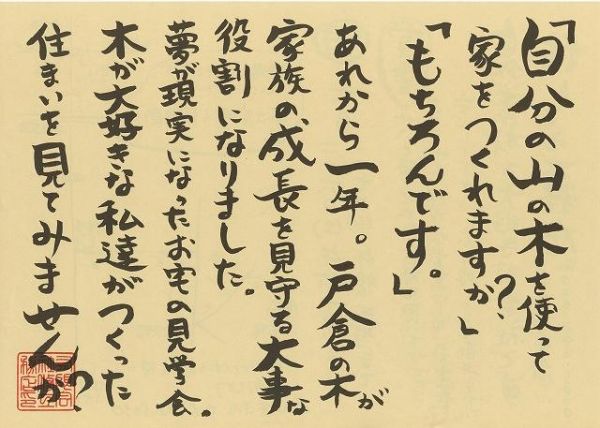 「自分の山の木を使って
家をつくれますか？」
「もちろんです。」
あれから一年。戸倉の木が
家族の成長を見守る大事な
役割になりました。
夢が現実になったお宅の見学会。
木が大好きな私達がつくった
住まいを見てみませんか？